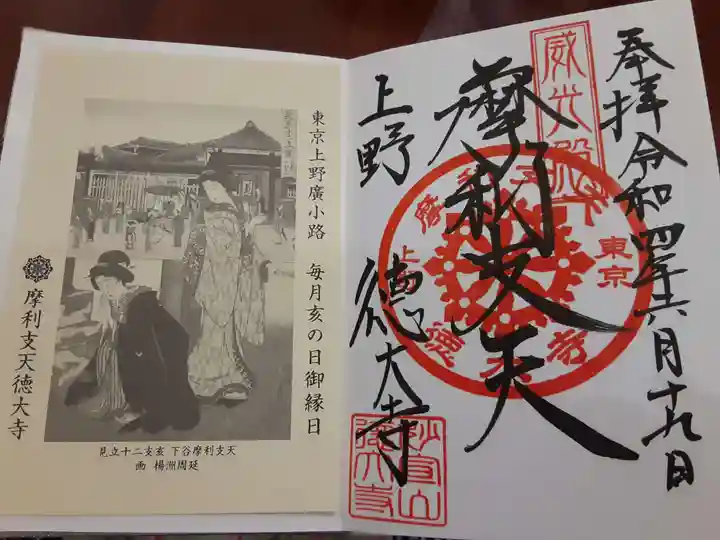 東京上野廣小路　毎月亥の日御縁日
摩利支天徳大寺
見立十二支亥 下谷摩利支天
楊洲周延 画
奉拝 令和四年六月十九日
威光殿
摩利支天
東京
上野
徳大寺
上野 徳大寺
妙宣山
徳大寺